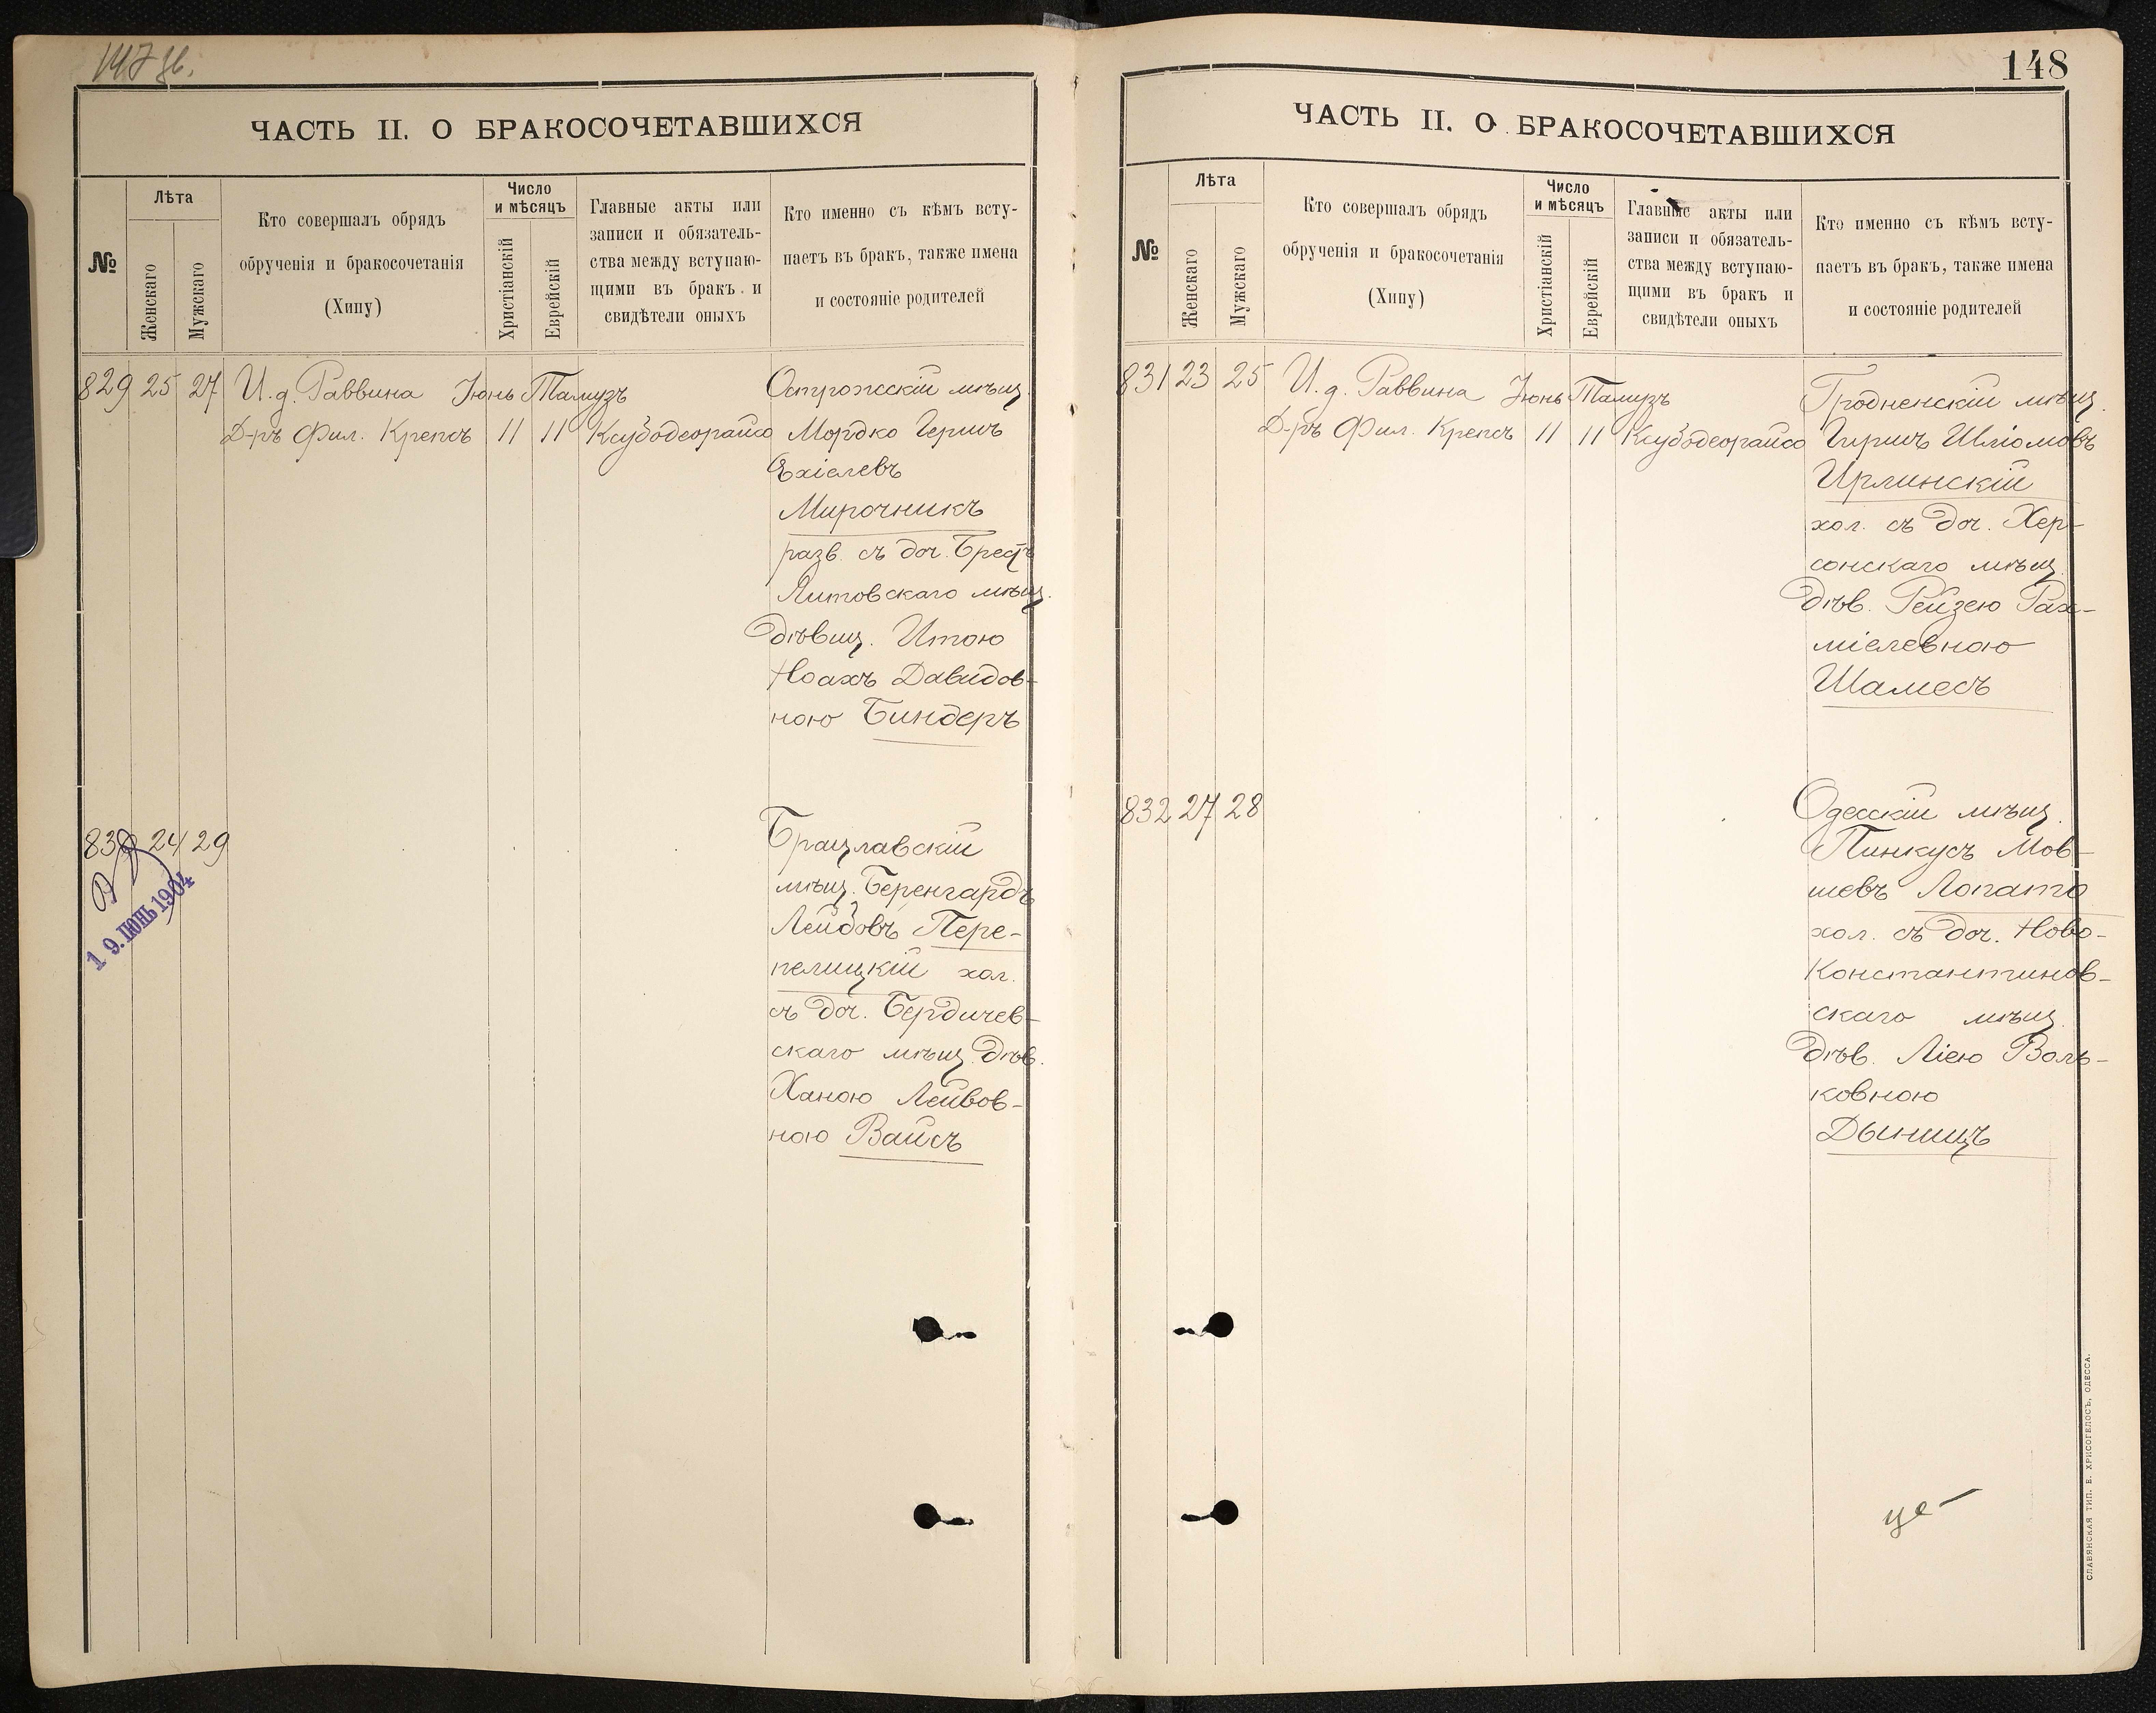 147 об.
ЧАСТЬ II. О БРАКОСОЧЕТАВШИХСЯ
№
Лѣта
Женскаго
Мужскаго
Кто совершалъ обрядъ
обрученія и бракосочетанія
(Хипу)
Число
и мѣсяцъ
Христіанскій
Еврейскій
Главные акты или
записи и обязатель-
ства между вступаю-
щими въ бракъ и
свидѣтели оныхъ
Кто именно съ кѣмъ всту-
паетъ въ бракъ, также имена
и состояніе родителей
829 25 27 И. д. Раввина Іюнь Тамузъ Острожскій мѣщ.
Д-ръ Фил. Крепсъ 11 11 Ксубодеорайсо Мордко Гершъ
Ехіелевъ
Мирочникъ
разв. съ доч. Брестъ
Литовскаго мѣщ.
дѣвиц. Итою
Ноахъ Давидов-
ною Биндеръ
830 24 29 Брацлавскій
мѣщ. Беренгардъ
Лейбовъ Пере-
пелицкій хол.
съ доч. Бердичев-
скаго мѣщ. дѣв.
Ханою Лейвов-
ною Вайсъ
19. ІЮНЬ 1904
148
ЧАСТЬ II. О БРАКОСОЧЕТАВШИХСЯ
№
Лѣта
Женскаго
Мужскаго
Кто совершалъ обрядъ
обрученія и бракосочетанія
(Хипу)
Число
и мѣсяцъ
Христіанскій
Еврейскій
Главные акты или
записи и обязатель-
ства между вступаю-
щими въ бракъ и
свидѣтели оныхъ
Кто именно съ кѣмъ всту-
паетъ въ бракъ, также имена
и состояніе родителей
831 23 25 И. д. Раввина Іюнь Тамузъ Гродненскій мѣщ.
Д-ръ Фил. Крепсъ 11 11 Ксубодеорайсо Гиршъ Шліомовъ
Ирлинскій
хол. съ доч. Хер-
сонскаго мѣщ.
дѣв. Рейзею Рах-
міелевною
Шамесъ
832 27 28 Одесскій мѣщ.
Пинкусъ Мов-
шевъ Лопато
хол. съ доч. Ново-
Константинов-
скаго мѣщ.
дѣв. ЛіеюВоль-
ковною
Дыницъ
СЛАВЯНСКАЯ ТИП. Е. ХРИСОГЕЛОСЪ, ОДЕССА.